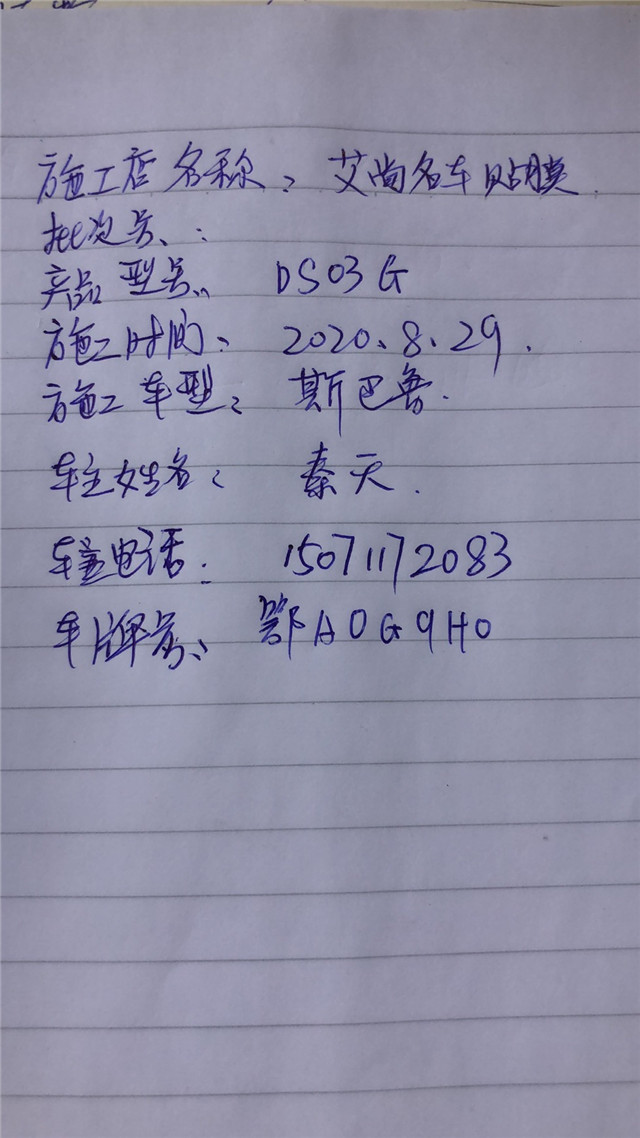 施工店名称：艾尚名车贴膜.
批次号：
产品型号： DS03G
施工时间： 2020.8.29.
施工车型： 斯巴鲁.
车主姓名： 秦天.
车主电话： 15071172083
车牌号： 鄂A0G9H0